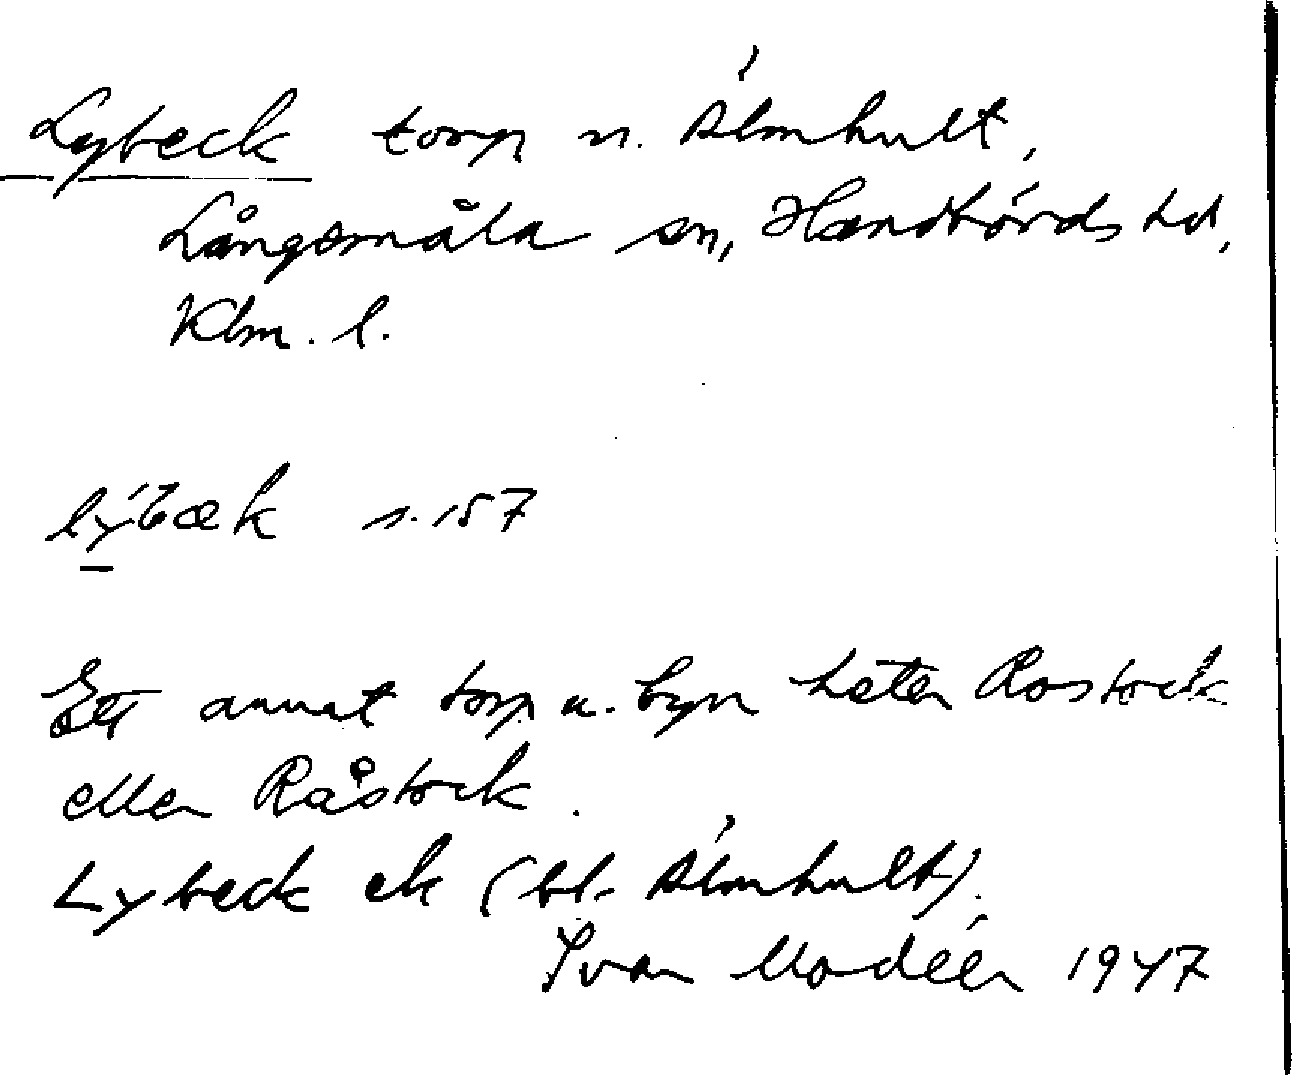 Lybeck torp u. Älmhult,
Långemåla sn, Handbörds hd,
Klm. l.
lýbæk s. 157
Ett annat torp u. byn heter Rostock
eller Råstock.
Lybeck ek (bl. Älmhult).
Ivar Modéer 1947